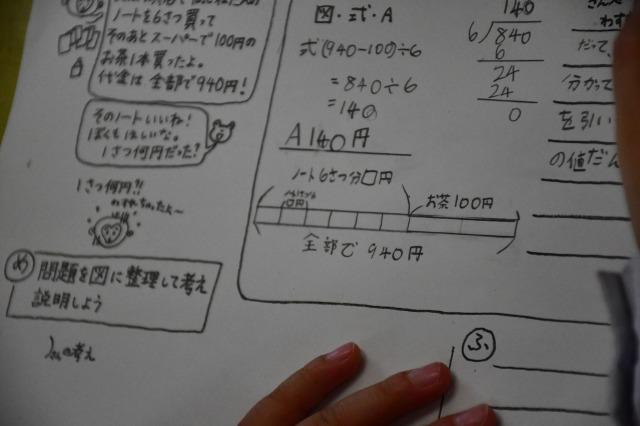 ノートを6さつ買って
そのあとスーパーで100円の
お茶1本買ったよ。
代金は全部で940円!
そのノートいいね!
ぼくもほしいな。
1さつ何円だった?
1さつ何円!!
め
問題を図に整理して考え
説明しよう
の考え
図・式・A
式(940-100)÷6
=840÷6
=140
A 140円
140
6)840
6
24
24
0
ノート6さつ分□円
お茶100円
□円
全部で 940円
だって、
分かって
を引い
の値だん
ふ